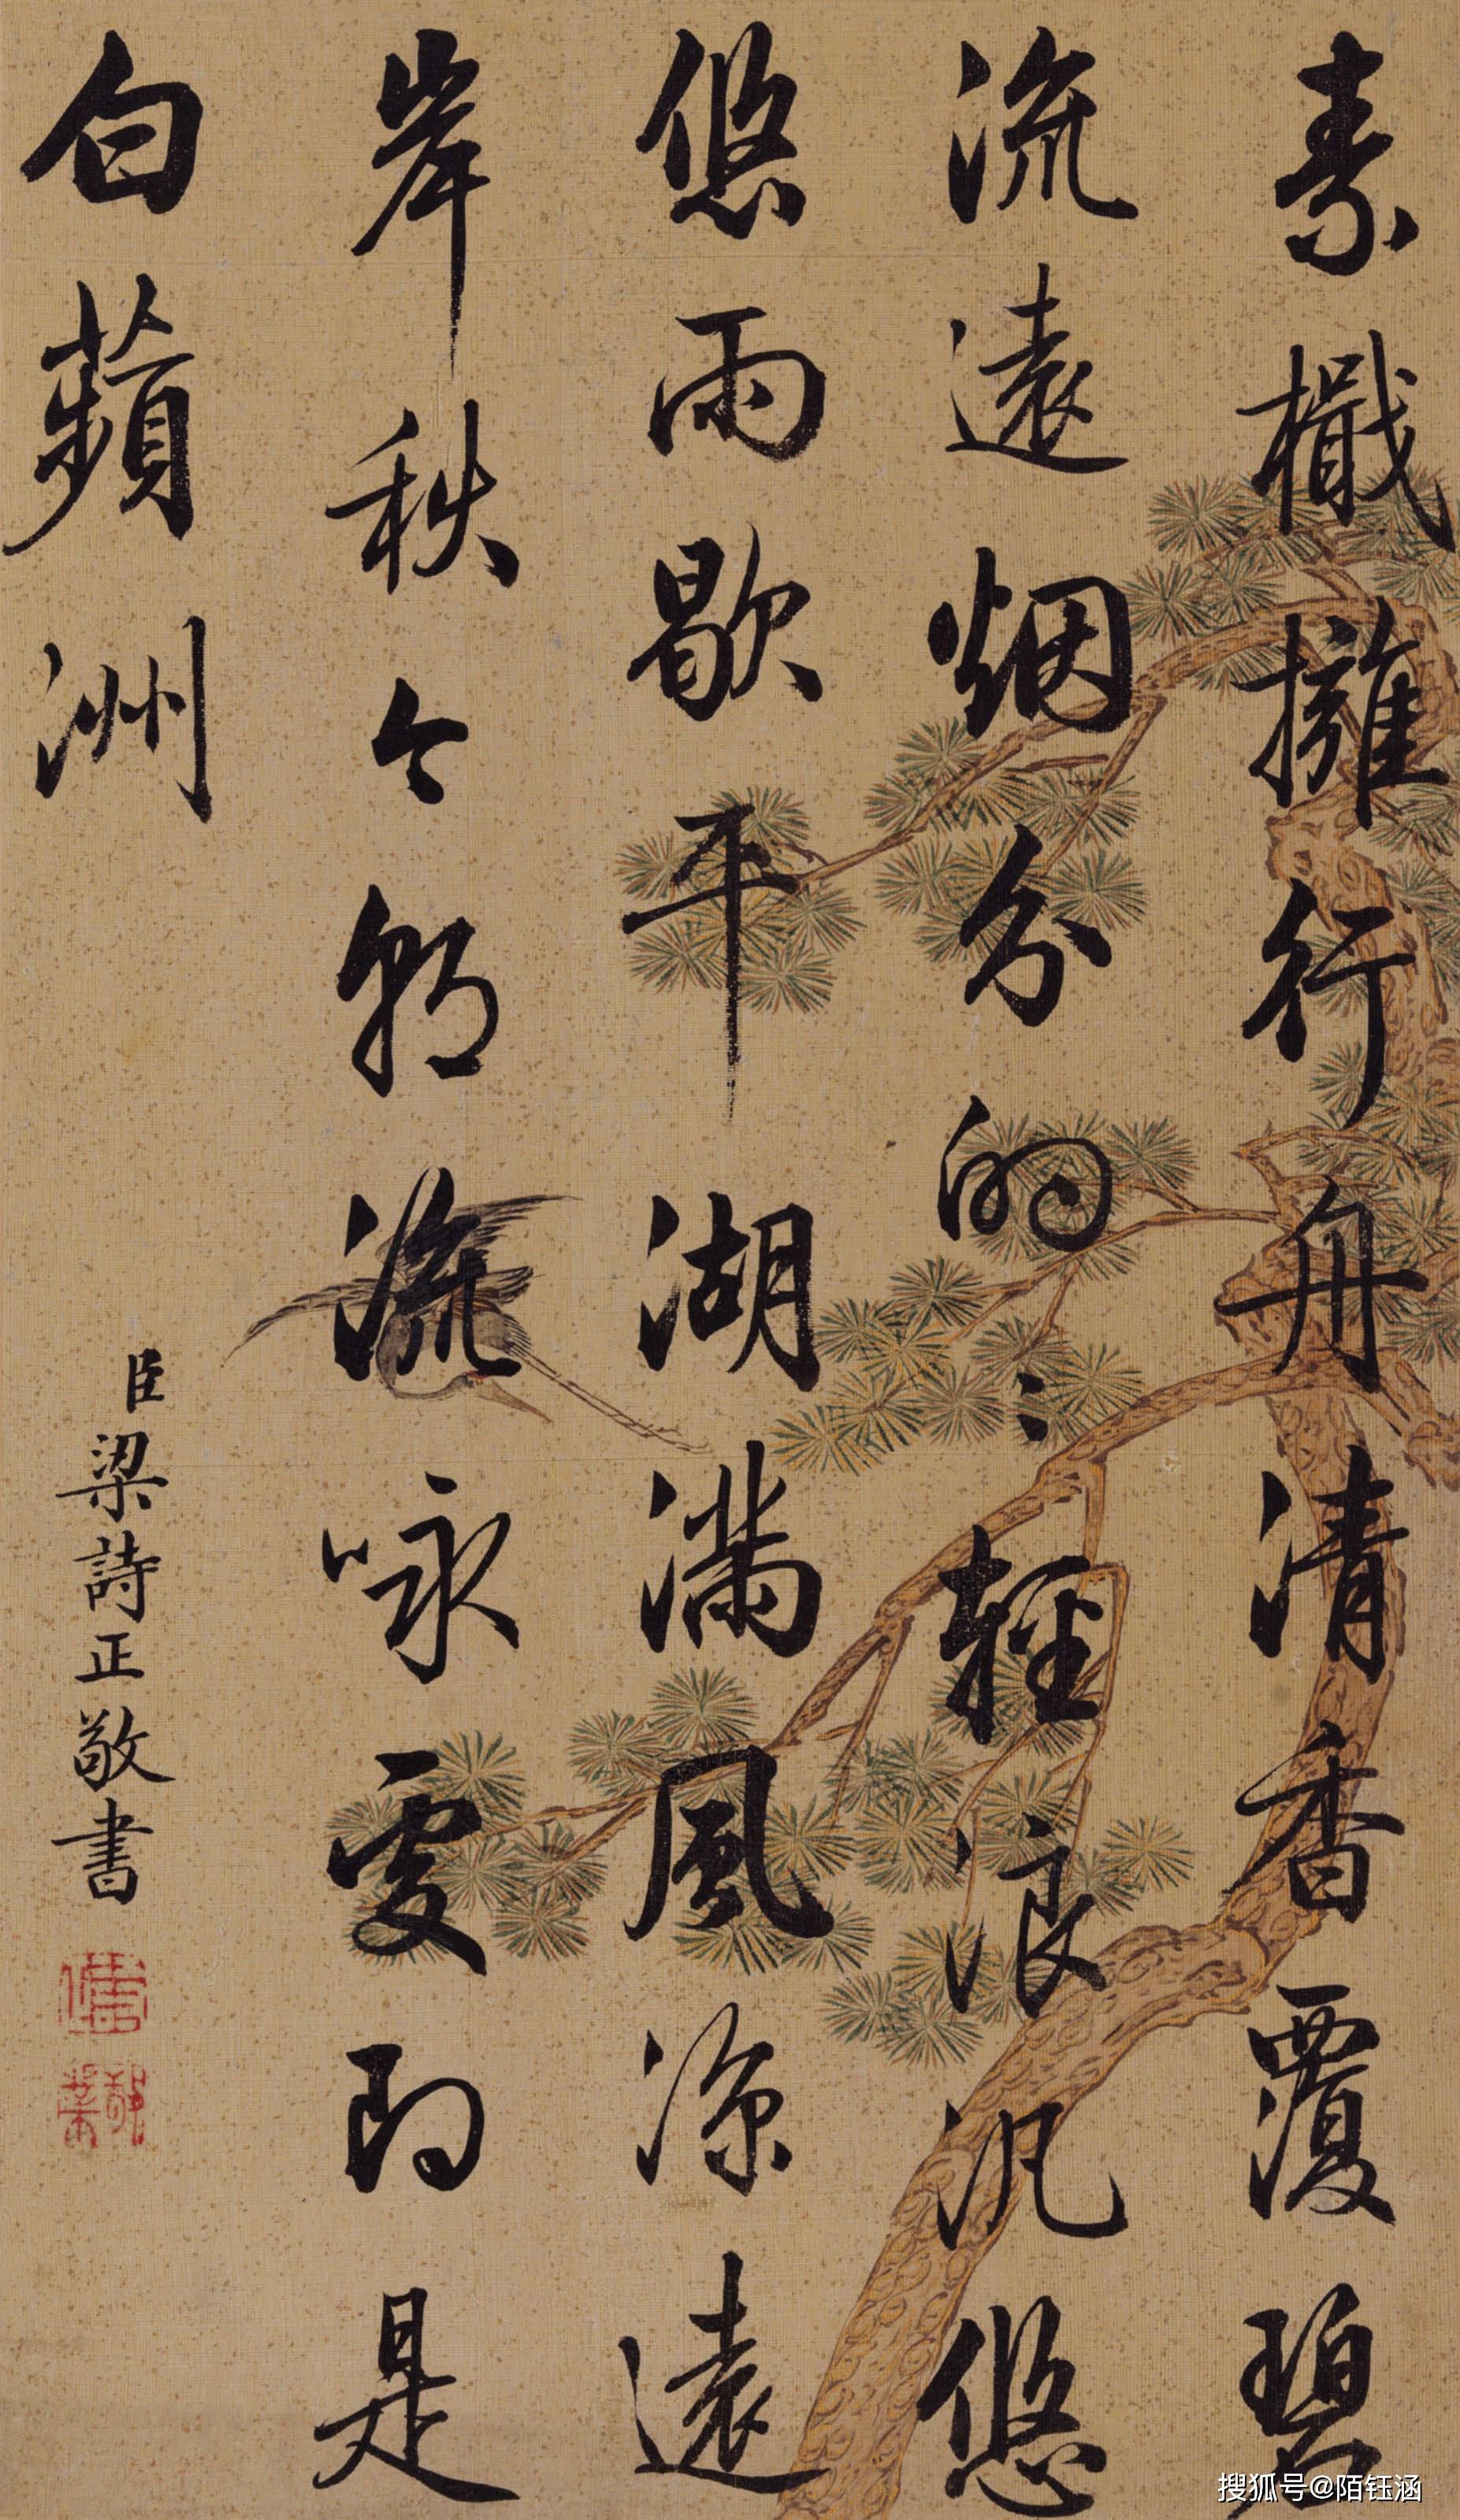 素檝擁行舟清香覆碧
流遠烟分的〻輕浪汎悠
悠雨歇平湖滿風涼遠
岸秋今朝流咏處即是
白蘋洲
臣梁詩正敬書
搜狐号@陌钰涵